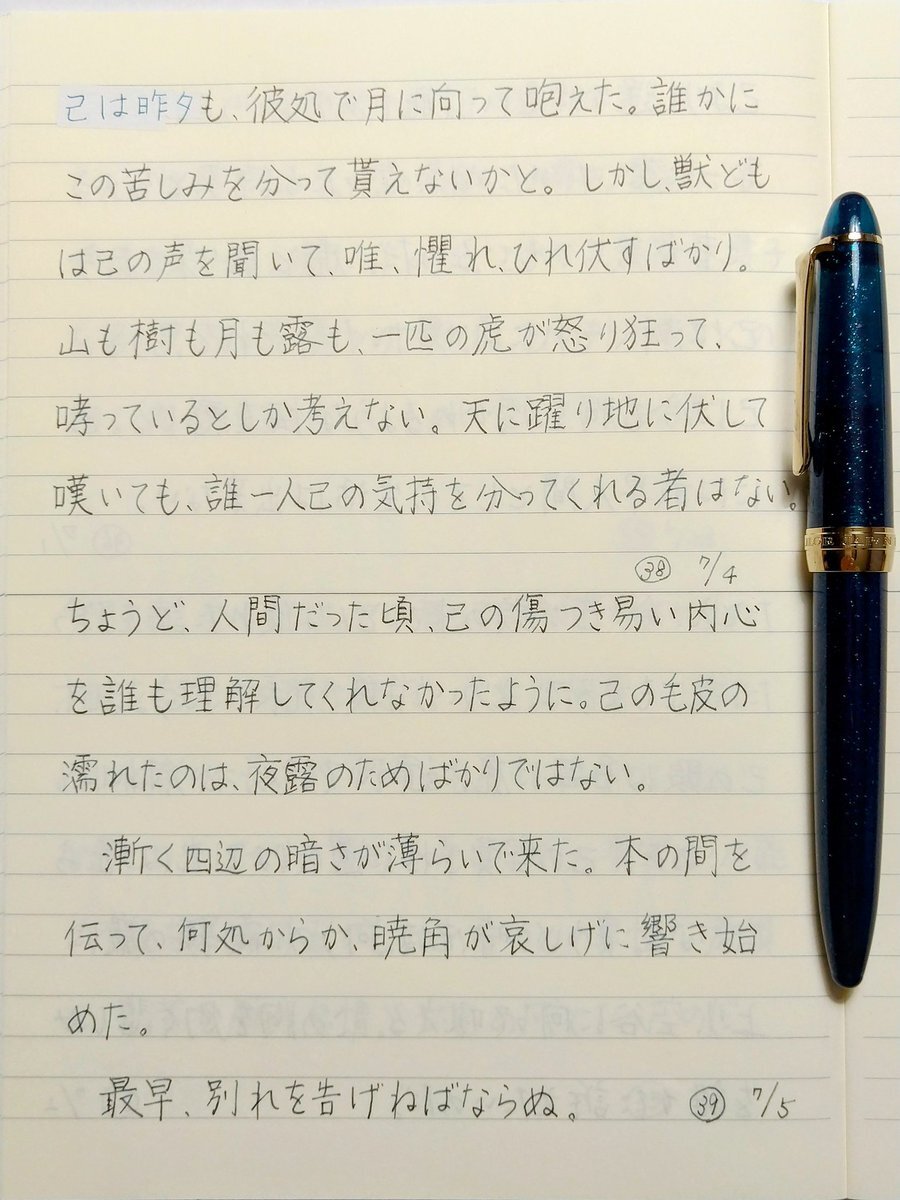 己は昨夕も、彼処で月に向って咆えた。誰かに
この苦しみを分って貰えないかと。しかし、獣ども
は己の声を聞いて、唯、懼れ、ひれ伏すばかり。
山も樹も月も露も、一匹の虎が怒り狂って、
哮っているとしか考えない。天に躍り地に伏して
嘆いても、誰一人己の気持を分ってくれる者はない。
㊳ 7/4
ちょうど、人間だった頃、己の傷つき易い内心
を誰も理解してくれなかったように。己の毛皮の
濡れたのは、夜露のためばかりではない。
漸く四辺の暗さが薄らいで来た。本の間を
伝って、何処からか、暁角が哀しげに響き始
めた。
最早、別れを告げねばならぬ。 ㊴ 7/5